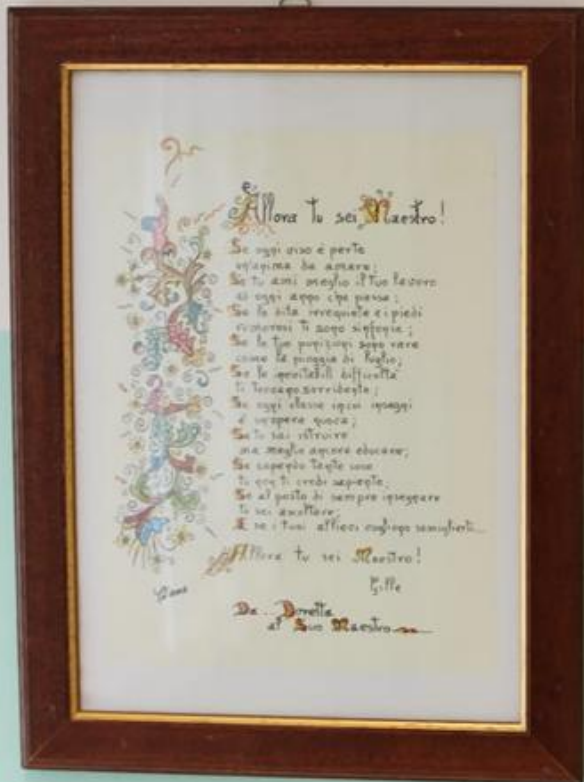 E Allora tu sei Maestro!
Se ogni viso è per te
un'anima da amare;
Se tu ami meglio il tuo lavoro
ad ogni anno che passa;
Se le dita irrequiete e i piedi
rumorosi ti sono sinfonie;
Se le tue punizioni sono rare
come la pioggia di luglio;
Se le inevitabili difficoltà
ti trovano sorridente;
Se ogni classe in cui insegni
è un'opera nuova;
Se tu sai istruire
ma meglio ancora educare;
Se sapendo tante cose
tu non ti credi sapiente;
Se al posto di sempre insegnare
tu sai ascoltare;
E se i tuoi allievi vogliono somigliarti...
Allora tu sei Maestro!
Gille
Da Doretta
al Suo Maestro